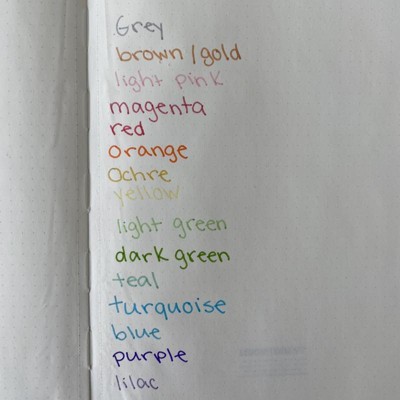 Grey
brown/gold
light pink
magenta
red
orange
Ochre
yellow
light green
dark green
teal
turquoise
blue
purple
lilac